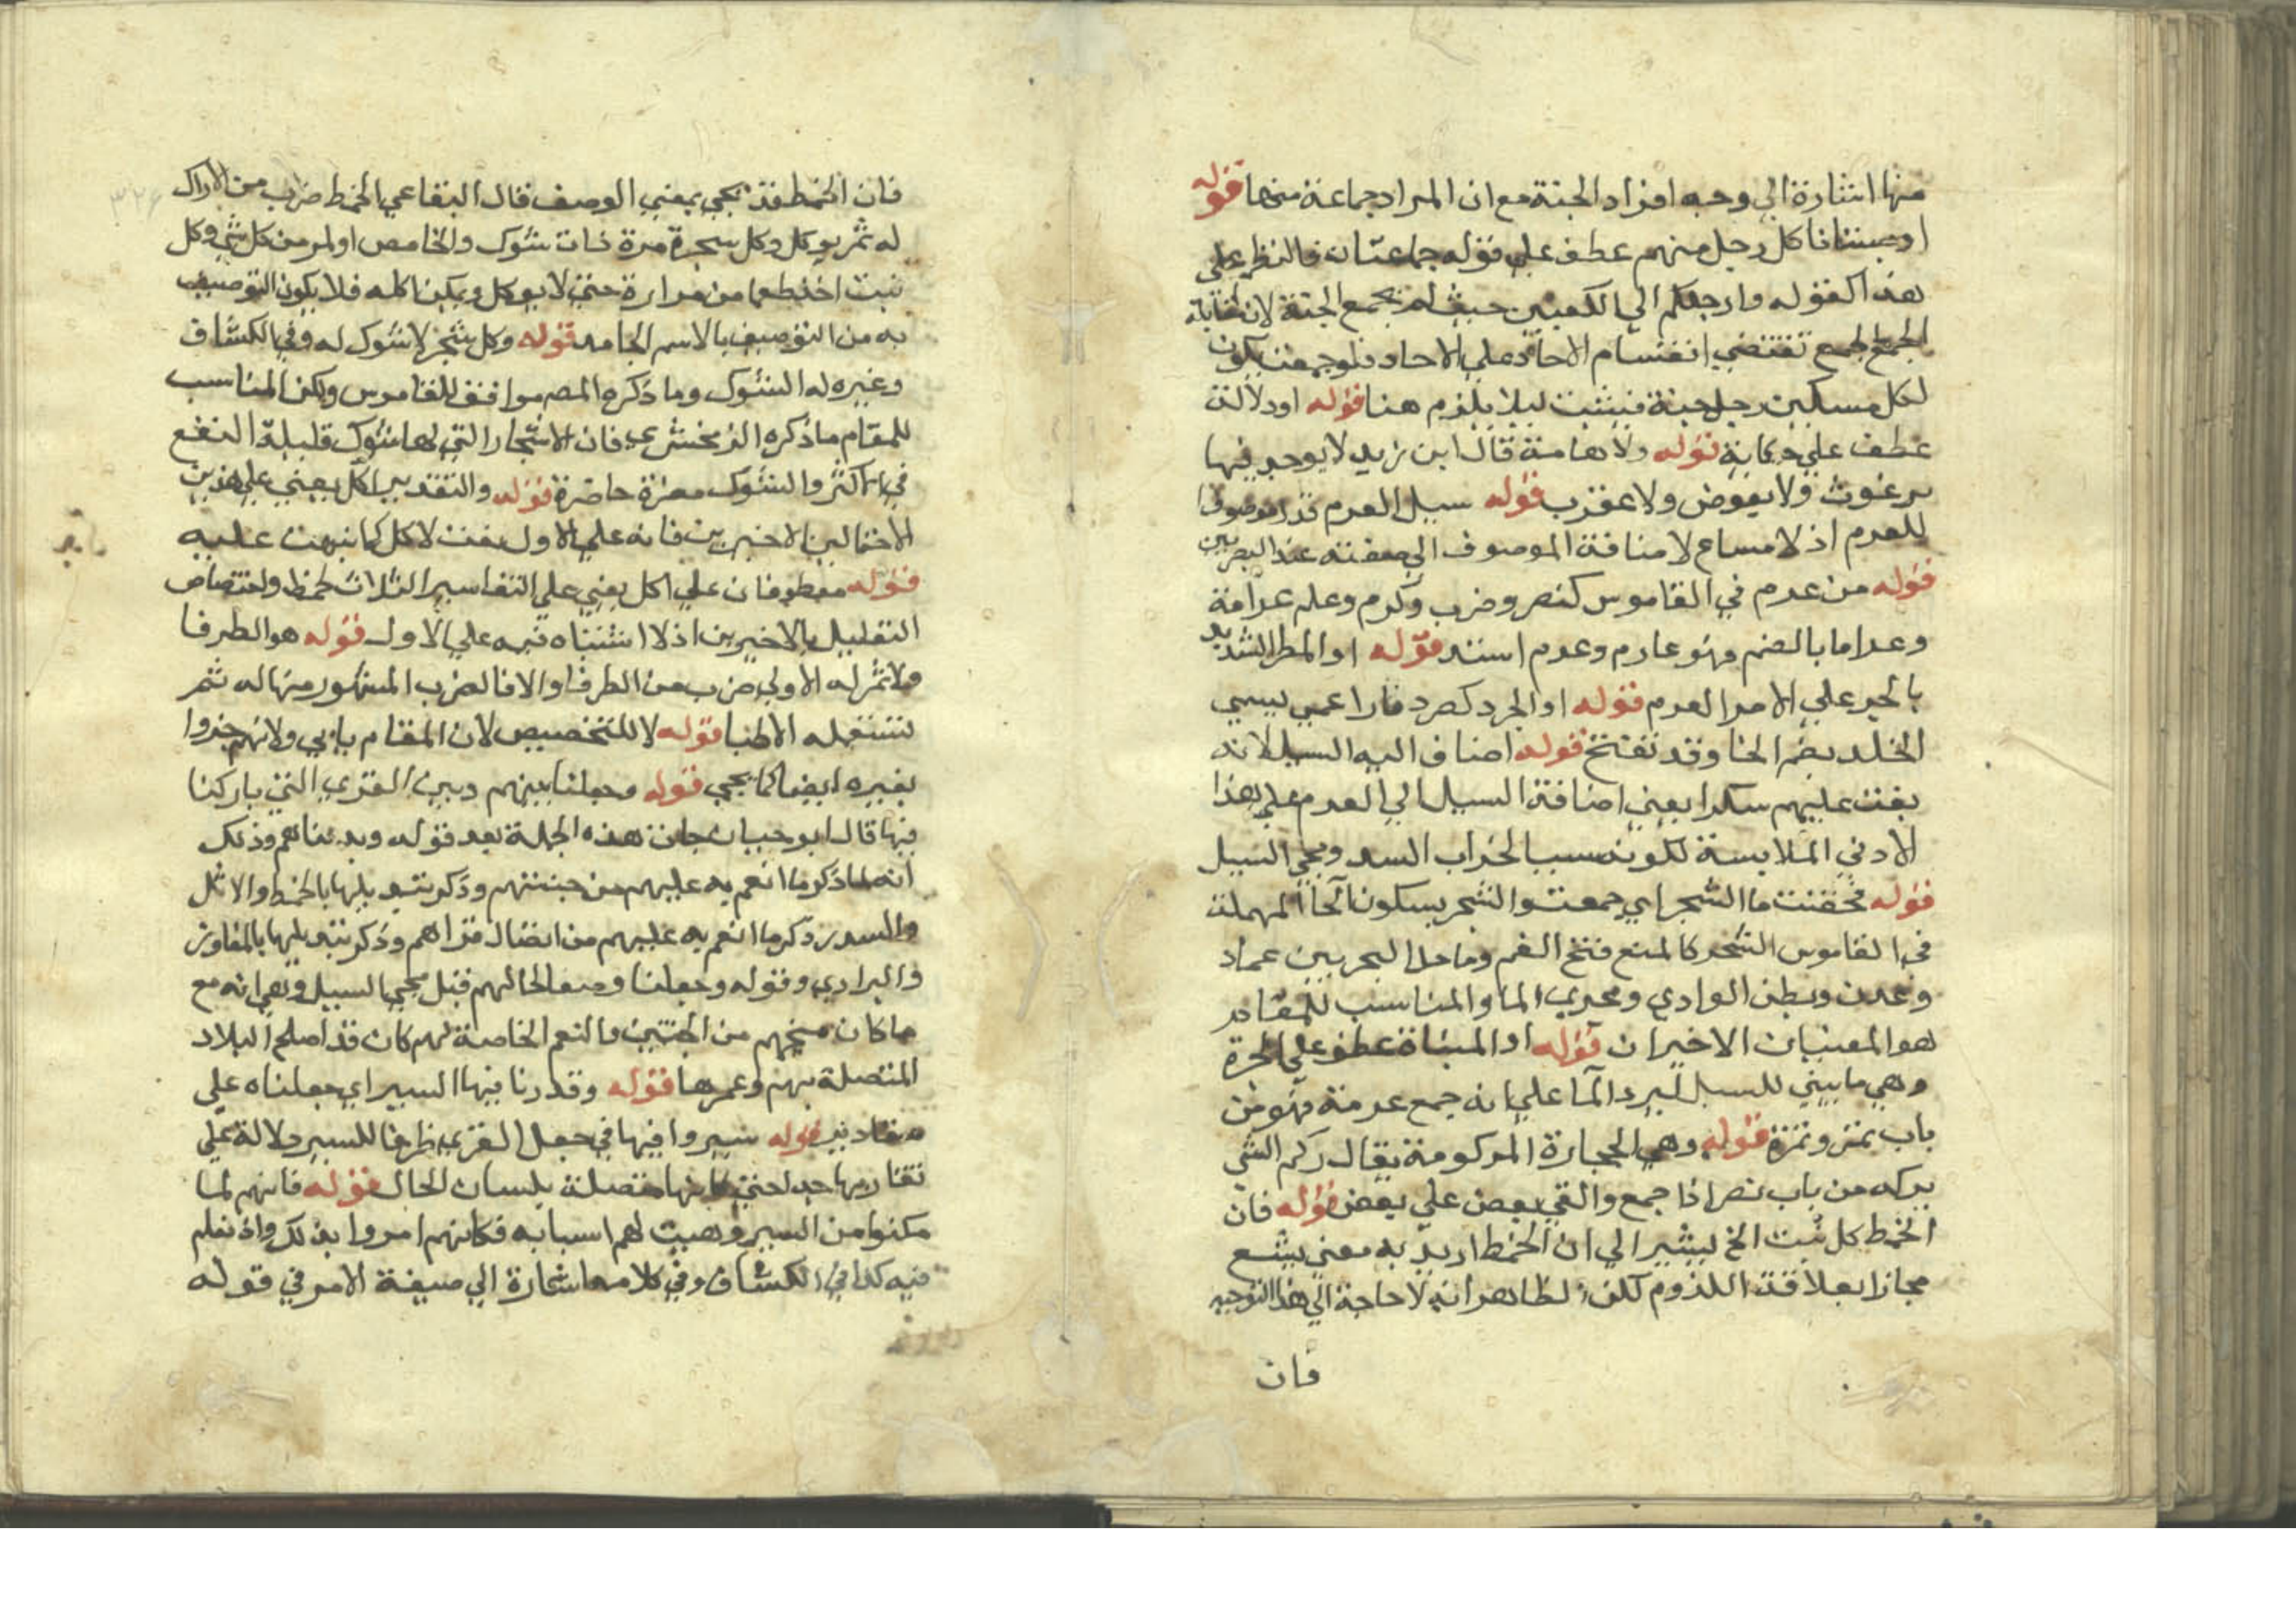 منها اشارة الي وجه افراد الجنة مع ان المراد جماعة منها قوله
او بستانا كل رجل منهم عطف علي قوله جماعتان فالنظر علي
هذا كقوله وارجلكم الي الكعبين حيث لم يجمع الجنة لان مقابلة
الجمع بالجمع تقتضي انقسام الاحاد علي الاحاد فلو جمعت يكون
لكل مسكن رجل جنة فبنيت ليلا يلزم هنا قوله او دلالة
عطف علي حكاية قوله ولا هامة قال ابن زيد لا يوجد فيها
برغوث ولا بعوض ولا عقرب قوله سيل العرم قدر موصوفا
للعرم اذ لا مساع لا منافة الموصوف الي صفته عند البصريين
قوله من عرم في القاموس كنصر وضرب وكرم وعلم عرامة
وعراما بالضم فهو عارم وعرم اشتد قوله او المطر الشديد
بالجر علي الامر العرم قوله او الجرد كصرد فارا عمي يسمي
الخلد بضم الخا وقد تفتح قوله اضاف اليه السيل لانه
يقبت عليهم سكرا يعني اضافة السيل الي العرم علي هذا
لادني الملابسة لكونه سببا لخراب السد ومجي السيل
قوله فحقنت ما الشجر اي جمعت والشحر بسكون الحا المهملة
في القاموس الشحر كالمنع فتح الفم وساحل البحر بين عمان
وعدن وبطن الوادي ومجري الما والمناسب للمقام
هو المعنيان الاخيران قوله او المسناة عطف علي الجرذ
وهي ما يبني للسيل ليرد الما علي انه جمع عرمة فهو من
باب تمر وتمرة قوله وهي الحجارة المركومة يقال ركم الشي
يركمه من باب نصر اذا جمع والقي بعض علي بعض قوله فان
الخمط كل نبت الخ يشير الي ان الخمط اريد به معني بشع
مجازا بعلاقة اللزوم لكن الظاهر انه لا حاجة الي هذا التوجيه
فان
فان الخمط قد يجي بمعني الوصف قال البقاعي الخمط ضرب من الاراك
له ثمر يوكل وكل شجرة مرة ذات شوك والحامض او المر من كل شي وكل
نبت اخذ طعما من مرارة حتي لا يوكل ويمكن اكله فلا يكون التوصيف
به من التوصيف بالاسم الجامد قوله وكل شجر لا شوك له وفي الكشاف
وغيره له الشوك وما ذكره المص موافق للقاموس ولكن المناسب
للمقام ما ذكره الزمخشري فان الاشجار التي لها شوك قليلة النفع
في الاكثر والشوك مضرة حاضرة قوله والتقدير اكل يعني علي هذين
الاحتمالين الاخيرين فانه علي الاول نعت لاكل كما نبهت عليه
قوله معطوفان علي اكل يعني علي التفاسير الثلاث لخمط واختصاص
التعليل بالاخيرين اذ لا اشتباه فيه علي الاول قوله هو الطرفا
ولا ثمر له الاولي ضرب من الطرفا والا فالضرب المشهور منها له ثمر
تستعمله الاطبا قوله لا للتخصيص لان المقام يابي ولانهم جوزوا
بغيره ايضا كما يجي قوله وجعلنا بينهم وبين القري التي باركنا
فيها قال ابو حيان جات هذه الجملة بعد قوله وبدلناهم وذلك
انه لما ذكر ما انعم به عليهم من جنتيهم وذكر تبديلها بالخمط والاثل
والسدر ذكر ما انعم به عليهم من اتصال قراهم وذكر تبديلها بالمفاوز
والبراري وقوله وجعلنا وصف لحالهم قبل مجي السيل وهي انه مع
ما كان منحهم من الجنتين والنعم الخاصة لهم كان قد اصلح البلاد
المتصلة بهم وعمرها قوله وقدرنا فيها السير اي جعلناه علي
مقادير قوله سيروا فيها في جعل القري ظرفا للسير دلالة علي
تقاربها جدا حتي كانها متصلة بلسان الحال قوله فانهم لما
مكنوا من السير وهيت لهم اسبابه فكانهم امروا بذلك واذ نعلم
فيه كذا في الكشاف وفي كلامهما اشارة الي صيغة الامر في قوله